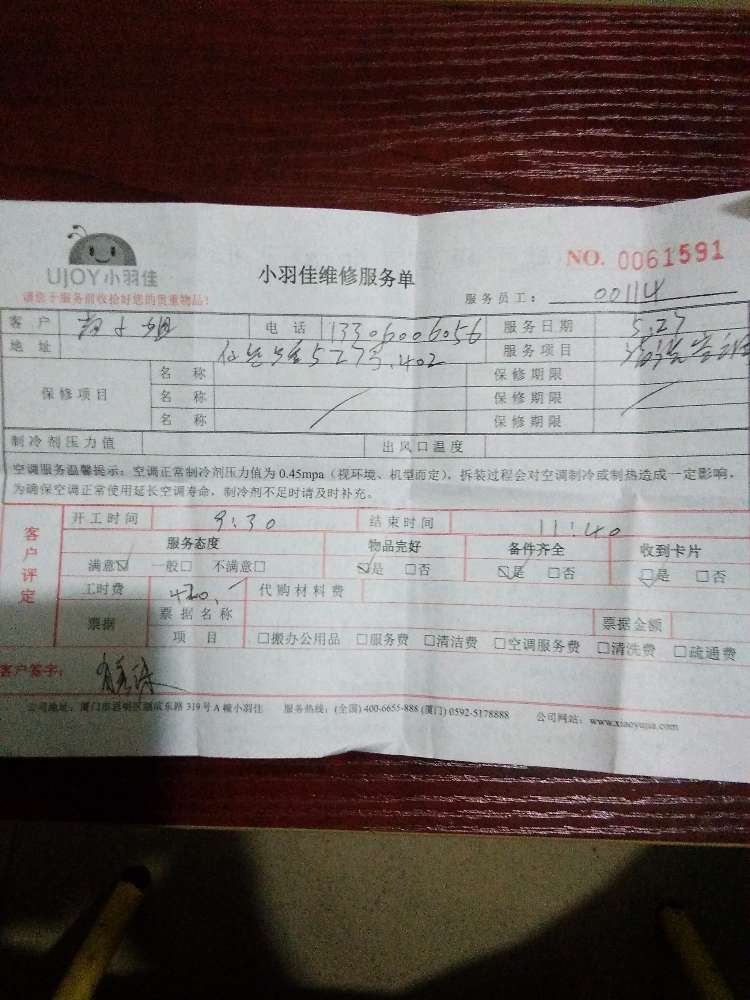 UJOY小羽佳
小羽佳维修服务单
NO. 0061591
请您于服务前收拾好您的贵重物品!
服务员工: 00114
客户 小姐 电话 13306006056 服务日期 5.27
地址 527号.402 服务项目
保修项目 名称 保修期限
名称 保修期限
名称 保修期限
制冷剂压力值 出风口温度
空调服务温馨提示:空调正常制冷剂压力值为0.45mpa(视环境、机型而定),拆装过程会对空调制冷或制热造成一定影响,
为确保空调正常使用延长空调寿命,制冷剂不足时请及时补充。
客户评定
开工时间 9:30 结束时间 11:40
服务态度 物品完好 备件齐全 收到卡片
满意☑ 一般□ 不满意□ ☑是 □否 ☑是 □否 ☑是 □否
工时费 420. 代购材料费
票据 票据名称 票据金额
项目 □搬办公用品 □服务费 □清洁费 □空调服务费 □清洗费 □疏通费
客户签字:
公司地址:厦门市思明区湖滨东路319号A幢小羽佳 服务热线:(全国)400-6655-888 (厦门)0592-5178888 公司网站:www.xiaoyujia.com